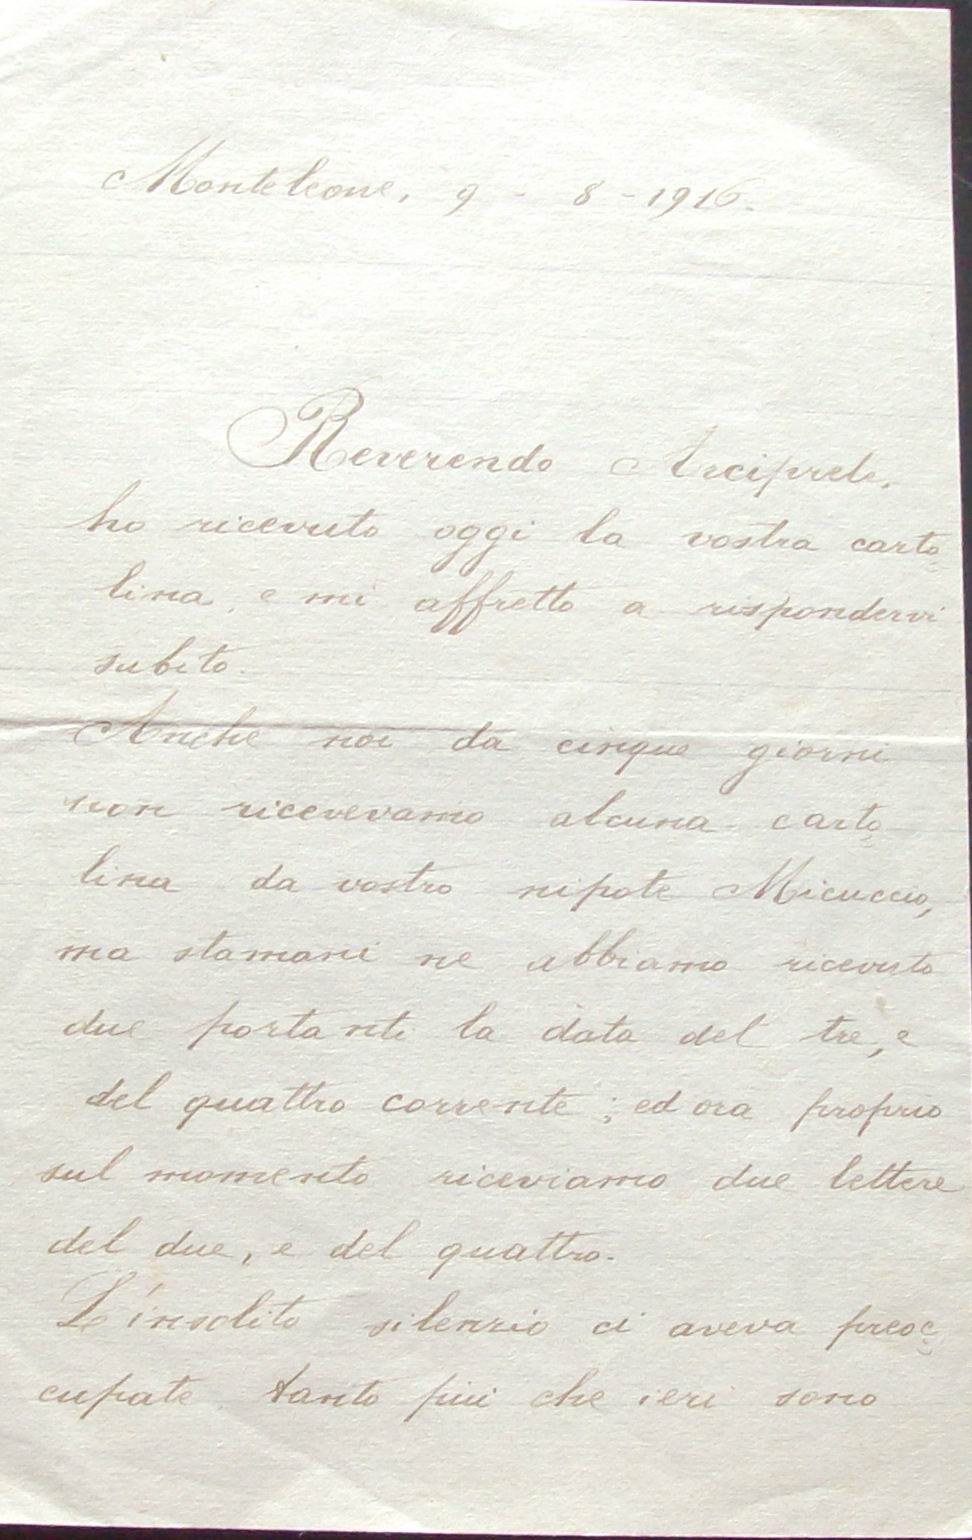 Monteleone, 9 - 8 - 1916.
Reverendo Arciprete,
ho ricevuto oggi la vostra carto
lina, e mi affretto a rispondervi
subito.
Anche noi da cinque giorni
non ricevevamo alcuna carto
lina da vostro nipote Micuccio,
ma stamani ne abbiamo ricevuto
due portanti la data del tre, e
del quattro corrente; ed ora proprio
sul momento riceviamo due lettere
del due, e del quattro.
L'insolito silenzio ci aveva preoc
cupate tanto più che ieri sono